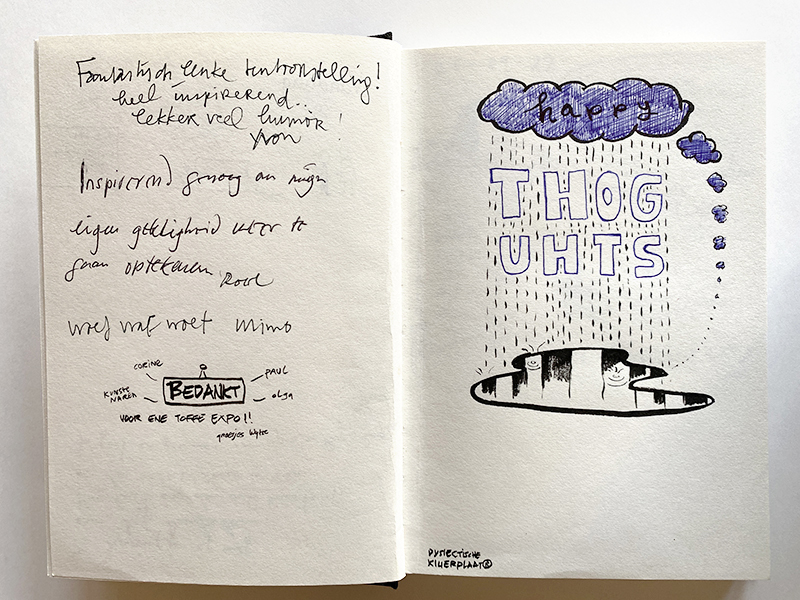 Fantastisch leuke tentoonstelling!
heel inspirerend..
lekker veel humor!
Yvon
Inspirerend genoeg om mijn
eigen gekkigheid weer te
gaan optekenen
Roel
woef waf woef Mimo
CORINE
PAUL
KUNSTE
NAREN
BEDANKT
OLJA
VOOR ENE TOFFE EXPO!!
groetjes Wytze
happy
THOG
UHTS
DYSLECTISCHE
KLLERPLAAT®